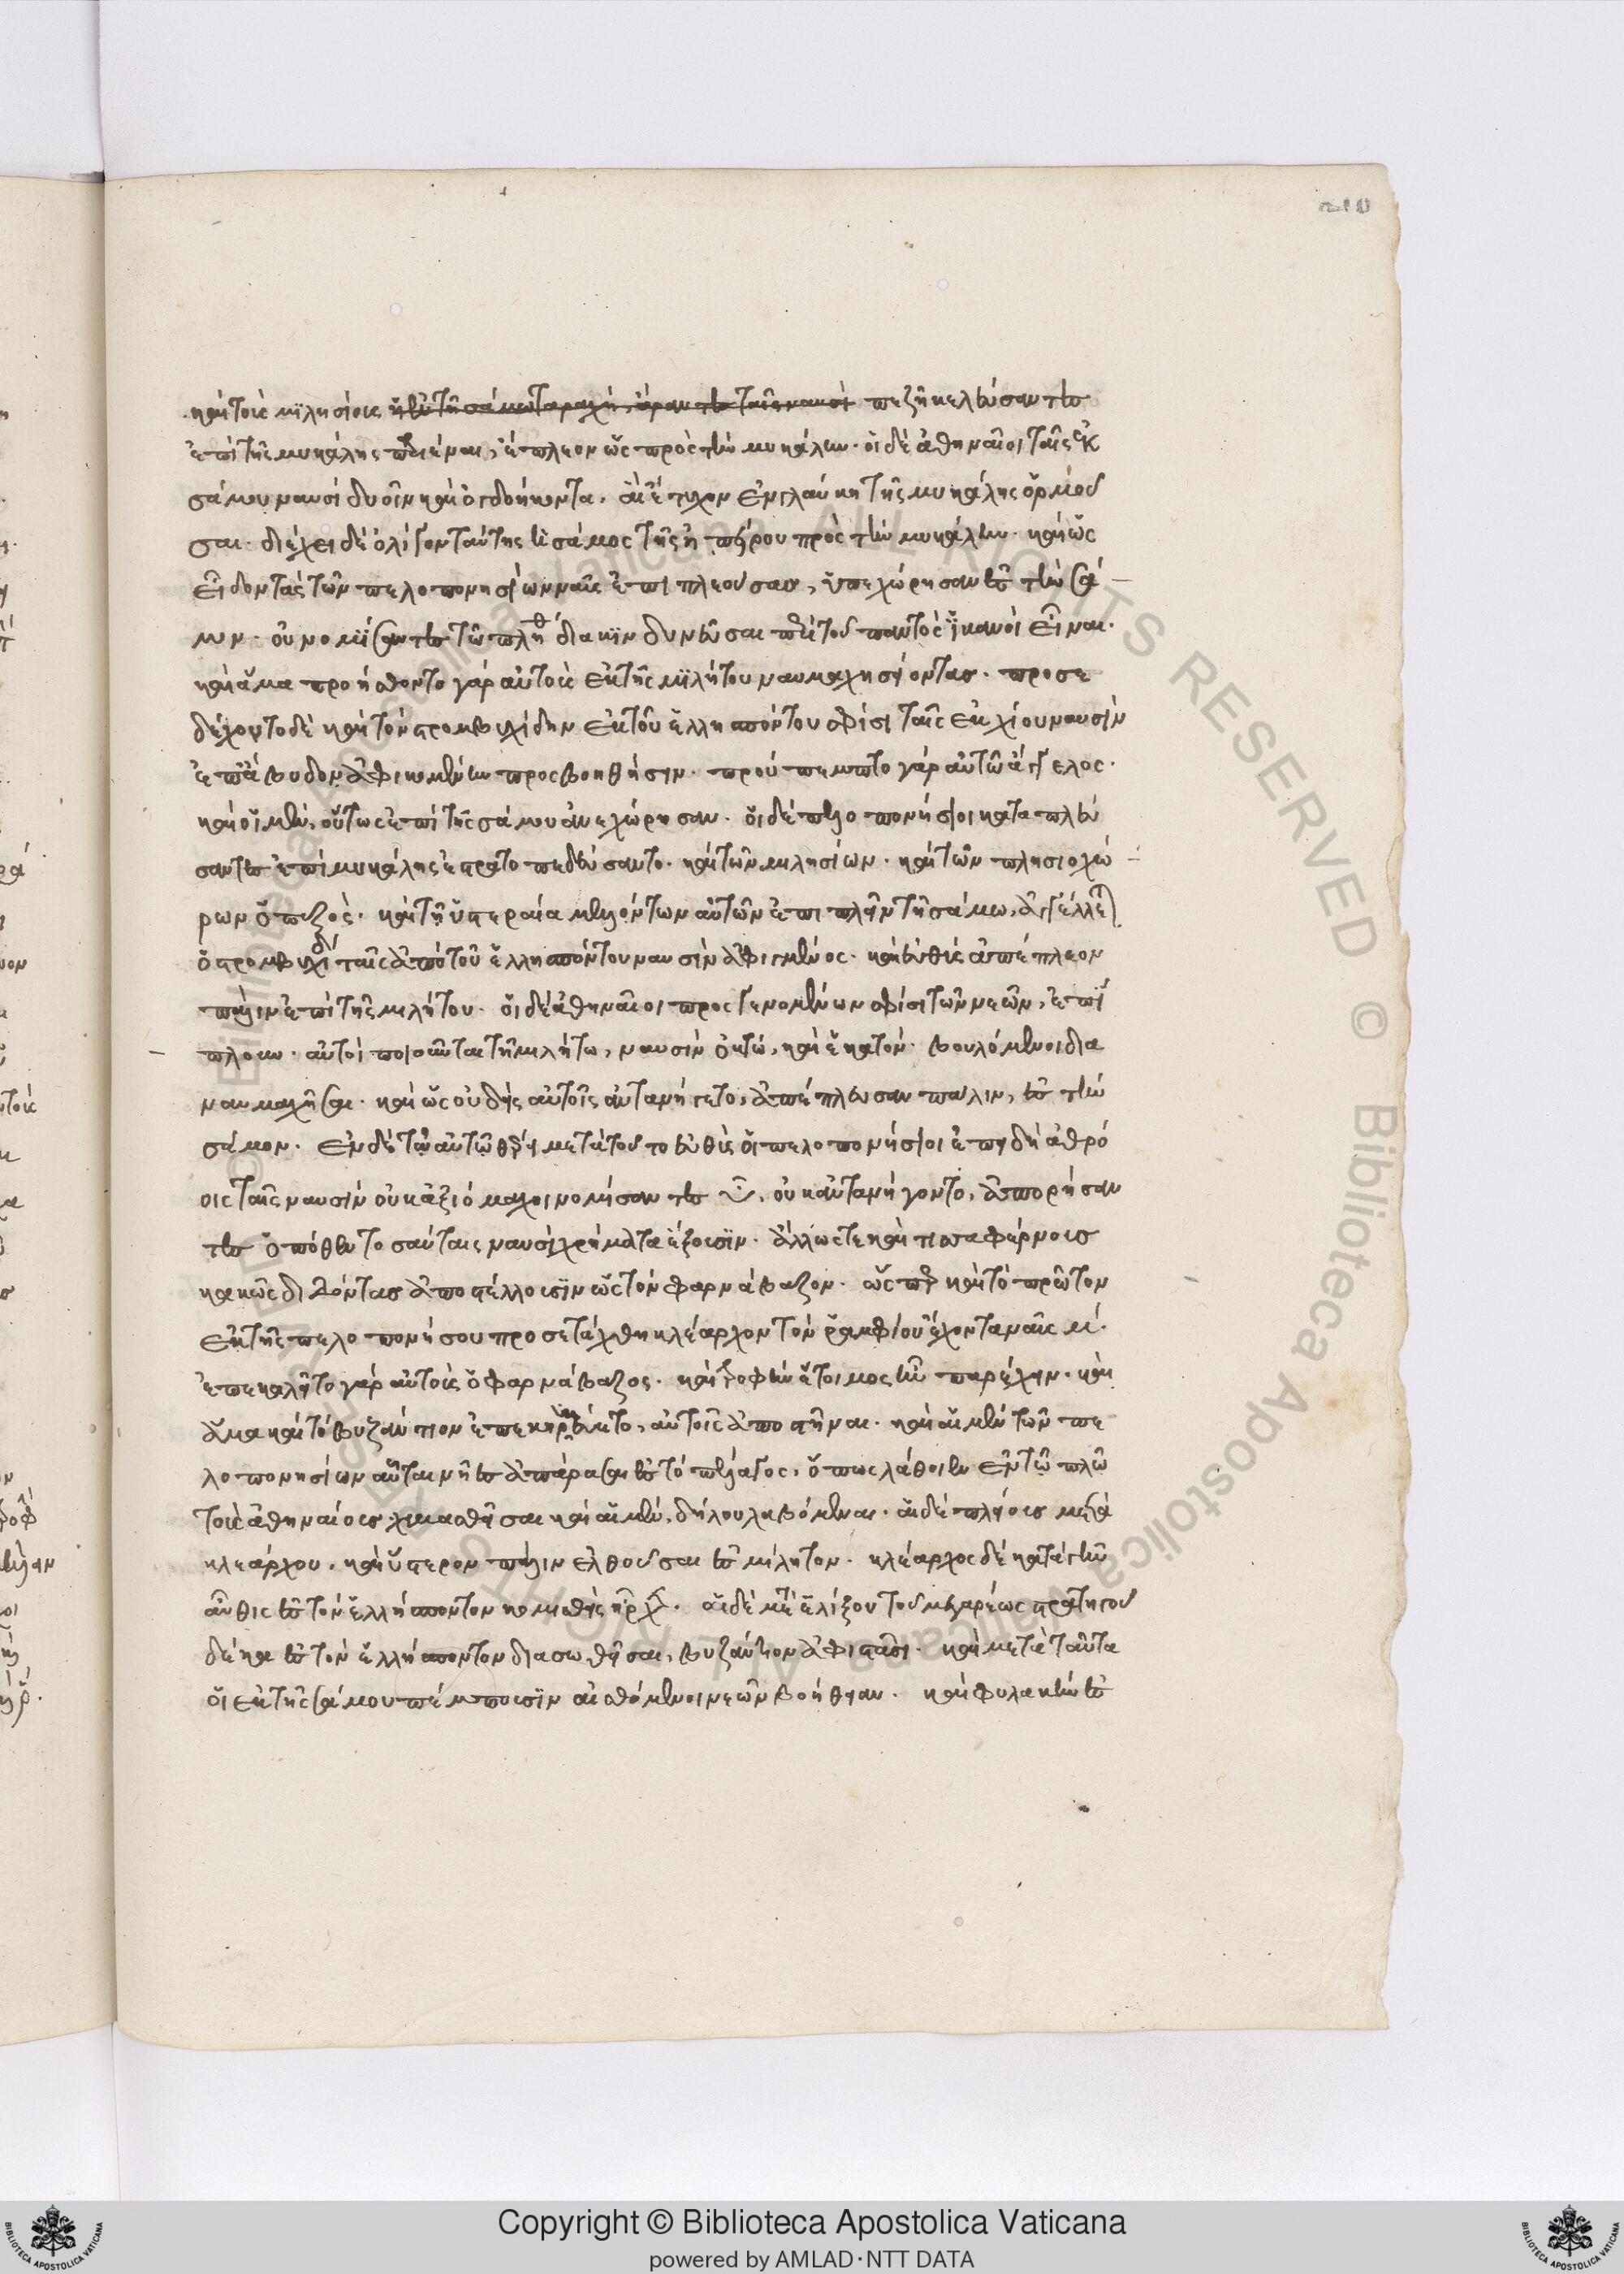 210
καὶ τοὺς μϊλησίους ἢ ἐν τῆ σάμω ταραχὴ, ἄραντες ταῖς ναυσὶ πεζῆ κελεύσαντες
ἐπὶ τῆς μυκάλης παριέναι, ἔπλεον ὡς πρὸς τὴν μυκάλην. οἱ δὲ ἀθηναῖοι ταῖς ἐκ
σάμου ναυσὶ δυοῖν καὶ ὀγδοήκοντα. αἳ ἔτυχον ἐν γλαύκη τῆς μυκάλης ὁρμοῦ
σαι. διέχει δὲ ὀλίγον ταύτης ἡ σάμος τῆς ἠπείρου πρὸς τὴν μυκάλην. καὶ ὡς
εἶδον τὰς τῶν πελοπονησίων ναῦς ἐπιπλεούσας, ὑπεχώρησαν ἐς τὴν σά
μον. οὐ νομίσαντες τῶ πλήθ διακϊνδυνεῦσαι περὶ τοῦ παντὸς ἱκανοὶ εἶναι.
καὶ ἅμα προήσθοντο γὰρ αὐτοὺς ἐκ τῆς μϊλήτου ναυμαχησείοντας. προσε
δέχοντο δὲ καὶ τὸν στρομβιχίδην ἐκ τοῦ ἑλλησπόντου σφίσι ταῖς ἐκ χίου ναυσὶν
ἐπ' ἀβύδου ἀφικομένων προσβοηθήσιν. προύπεμπτο γὰρ αὐτῶ ἄγγελος.
καὶ οἱ μὲν, οὕτως ἐπὶ τῆς σάμου ἀνεχώρησαν. οἱ δὲ πελοπονήσιοι καταπλεύ
σαντες ἐπὶ μυκάλης ἐστρατοπεδεύσαντο. καὶ τῶν μιλησίων. καὶ τῶν πλησιοχώ
ρων ὁ πεζὸς. καὶ τῆ ὑστεραία μελλόντων αὐτῶν ἐπιπλεῖν τῆ σάμω, ἀγγέλλε
ὁ στρομβιχίδ ταῖς ἀπὸ τοῦ ἑλλησπόντου ναυσὶν ἀφιγμένος. καὶ εὐθὺς ἀπέπλεον
πάλιν ἐπὶ τῆς μιλήτου. οἱ δὲ ἀθηναῖοι προσγενομένων σφίσι τῶν νεῶν, ἐπί
πλουν. αὐτοὶ ποιοῦνται τῆ μιλήτω, ναυσὶν ὀκτώ, καὶ ἑκατόν. βουλόμενοι δια
ναυμαχῆσαι. καὶ ὡς οὐδεὶς αὐτοῖς ἀντανήγετο, ἀπέπλευσαν πάλιν, ἐς τὴν
σάμον. ἐν δὲ τῶ αὐτῶ θέρει μετὰ τοῦτο εὐθὺς οἱ πελοπονήσιοι ἐπειδὴ ἀθρό
οις ταῖς ναυσὶν οὐκ ἀξιόμαχοι νομίσαντες εἶναι, οὐκ ἀντανήγοντο, ἀπορήσαν
τες ὁπόθεν τοσαύταις ναυσὶ χρήματα ἕξουσϊν. ἄλλως τε καὶ τισσαφέρνους
κακῶς διδόντος ἀποστέλλουσϊν ὡς τὸν φαρνάβαζον. ὥσπερ καὶ τὸ πρῶτον
ἐκ τῆς πελοπονήσου προσετάχθη κλέαρχον τὸν ῥαμφίου ἔχοντα ναῦς μ΄.
ἐπεκαλεῖτο γὰρ αὐτοὺς ὁ φαρνάβαζος. καὶ τροφὴν ἕτοιμος ἦν παρέχειν. καὶ
ἅμα καὶ τὸ βυζάντιον ἐπεκηρυκεύετο, αὐτοῖς ἀποστῆναι. καὶ αἱ μὲν τῶν πε
λοπονησίων αὗται νῆες ἀπάρασαι ἐς τὸ πέλαγος, ὅπως λάθοιεν ἐν τῶ πλῶ
τοὺς ἀθηναίους χειμασθεῖσαι καὶ αἱ μὲν, δήλου λαβόμεναι. αἱ δὲ πλείους μετὰ
κλεάρχου. καὶ ὕστερον πάλιν ἐλθοῦσαι ἐς μίλητον. κλέαρχος δὲ κατὰ γῆν
αὖθις ἐς τὸν ἑλλήσποντον κομισθεὶς ἦρχ. αἱ δὲ μετὰ ἑλίξου τοῦ μεγαρέως στρατηγοῦ
δέκα ἐς τὸν ἑλλήσποντον διασωθεῖσαι, βυζάντιον ἀφιστᾶσι. καὶ μετὰ ταῦτα
οἱ ἐκ τῆς σάμου πέμπουσϊν αἰσθόμενοι νεῶν βοήθειαν. καὶ φυλακὴν ἐς
Copyright © Biblioteca Apostolica Vaticana
powered by AMLAD·NTT DATA